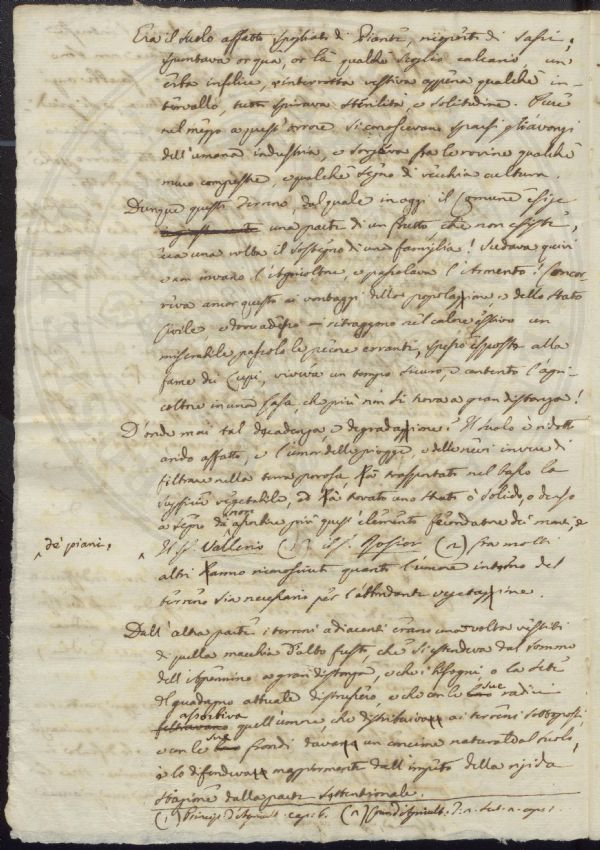 Era il suolo affatto spogliato di Piante, di Sassi;
spuntava or qua, or là qualche scoglio calcario, un'
erba infelice, ed interrotta vestiva appena qualche in-
tervallo, tutto spirava sterilità, e solitudine. Pure
nel mezzo a quest'orrore si conoscevan sparsi gli avanzi
dell'umana industria, e sorgeva fra le rovine qualche
muro campestre, e qualche segno di vecchia cultura.
Dunque questo Terreno, dal quale in oggi il Comune esige
una parte di un frutto che non esiste,
era una volta il sostegno di una famiglia! Sudava quivi
e non invano l'Agricoltore, e pascolava l'Armento! Concor-
riva ancor questo ai vantaggi della popolazione, e dello Stato
Civile, e dove adesso ritraggono nel calore estivo un
miserabile pascolo le pecore erranti, spesso esposte alla
fame dei Lupi, viveva un tempo sicuro, e contento l'agri-
coltore in una Casa, che più non si trova a gran distanza!
D'onde mai tal decadenza, e degradazione? Il suolo è ridotto
arido affatto, e l'umor delle piogge, e delle nevi invece di
filtrare nella terra porosa, fà trasportato nel basso la
vegetabile, ed fà trovato uno strato sì solido, e denso
a segno da non aprire più quest'elemento fecondatore dei monti, e
de' piani.
Il S. Vallerio (1) il S. Rosier (2) fra molti
altri anno riconosciuti quanto l'umore interno del
terreno sia necessario per l'abbondante vegetazione.
Dall'altra parte i terreni adiacenti erano una volta vestiti
di quella macchia d'alto fusto, che si estendeva dal sommo
dell'Apennino a gran distanza, e che i bisogni, o la sete
del guadagno attuale distrussero, e che con le sue radici
assorbiva quell'umore, che distribuiva ai terreni sottoposti,
e con le sue frondi dava un concime naturale al suolo,
e lo difendeva maggiormente dall'impeto della rigida
stagione dalla parte settentrionale.
(1) Principj d'Agricult. cap. 6. (2)